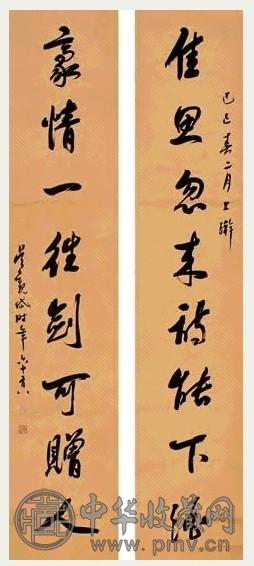 己巳春二月上澣
佳思忽来詩能下酒
豪情一往劍可贈人
吳觀岱时年六十有八
中华收藏网
www.pmv.cn